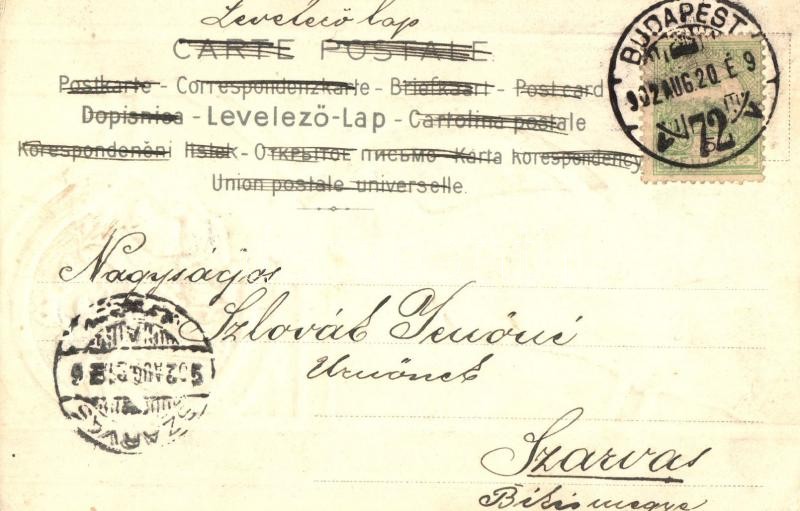 Levelező lap
CARTE POSTALE
Postkarte - Correspondenzkarte - Briefkaart - Postcard
Dopisnica - Levelező-Lap - Cartolina postale
Korespondenční lístek - Открытое письмо - Karta korespondency
Union postale universelle.
BUDAPEST
902 AUG. 20. É 9
72
Nagyságos
Szlovák Jenőné
Úrnőnek
Szarvas
Békésmegye
902 AUG. 21
SZARVAS